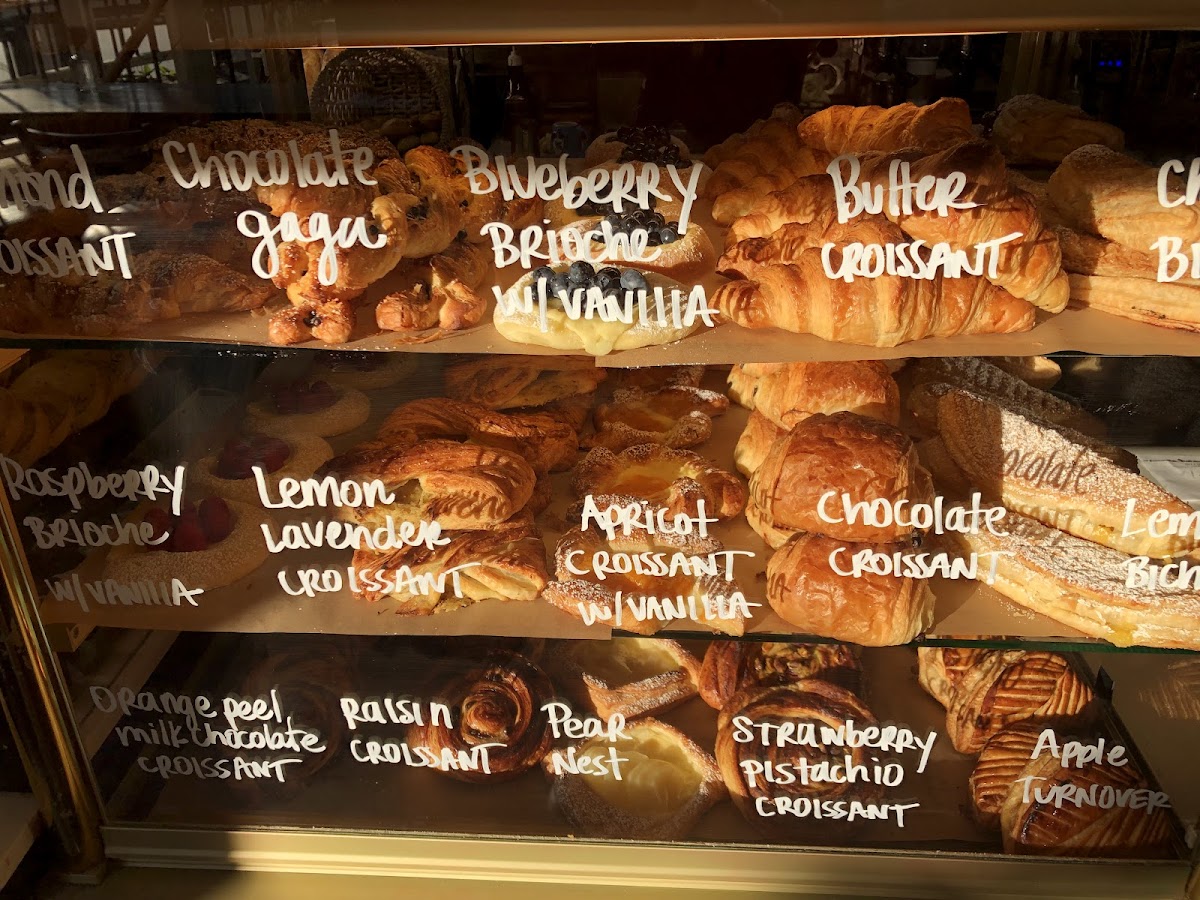 mond
CROISSANT
Chocolate
gaga
Blueberry
Brioche
w/VANILLA
Butter
CROISSANT
Ch
Bi
Raspberry
Brioche
w/VANILLA
Lemon
Lavender
CROISSANT
Apricot
CROISSANT
w/VANILLA
Chocolate
CROISSANT
Lem
Bich
Orange peel
milk chocolate
CROISSANT
Raisin
CROISSANT
Pear
Nest
STRAWBERRY
PISTACHIO
CROISSANT
Apple
TURNOVER